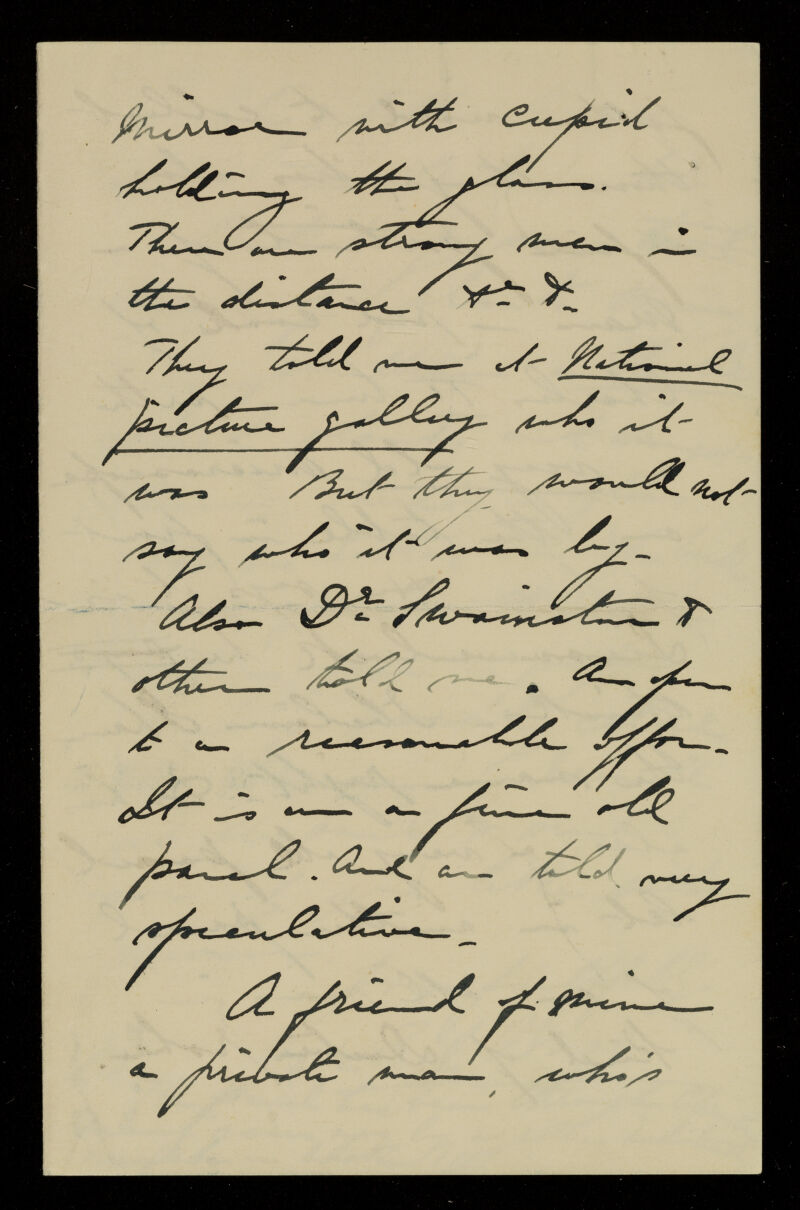 Mirror with Cupid
holding the glass.
There are strong men in
the distance &c &.
They told me at National
picture gallery who it
was But they would not
say who it was by-
Also Dr Swainston &
others told me. Am open
to a reasonable offer-
It is on a fine old
panel. And am told very
speculative-
A friend of mine
a private man, who's